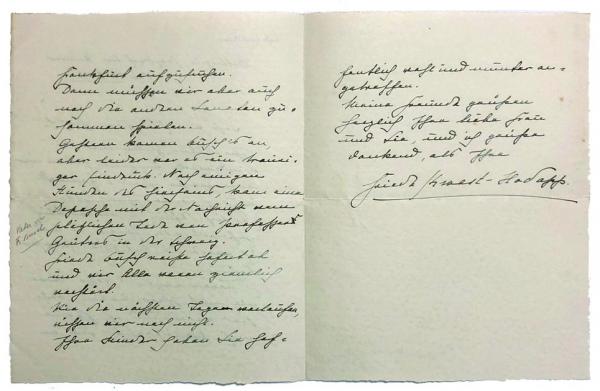 Frankfurt aufzusuchen.
Dann müssen wir aber auch
noch die anderen Sonaten zu=
sammen spielen.
Gestern kamen Busch's an,
aber leider war es ein trauri=
ger Eindruck. Nach einigen
Stunden des Hierseins, kam eine
Depesche mit der Nachricht vom
plötzlichen Tode von Professor
Grüters in der Schweiz.
Frieda Busch reiste sofort ab
und wir Alle waren ziemlich
verstört.
Wie die nächsten Tage verlaufen,
wissen wir noch nicht.
Ihre Kinder haben Sie hof=
fentlich wohl und munter an=
getroffen.
Meine Freunde grüßen
herzlich Ihre liebe Frau
und Sie, und ich grüße
dankend, als Ihre
Frieda Kwast-Hodapp.